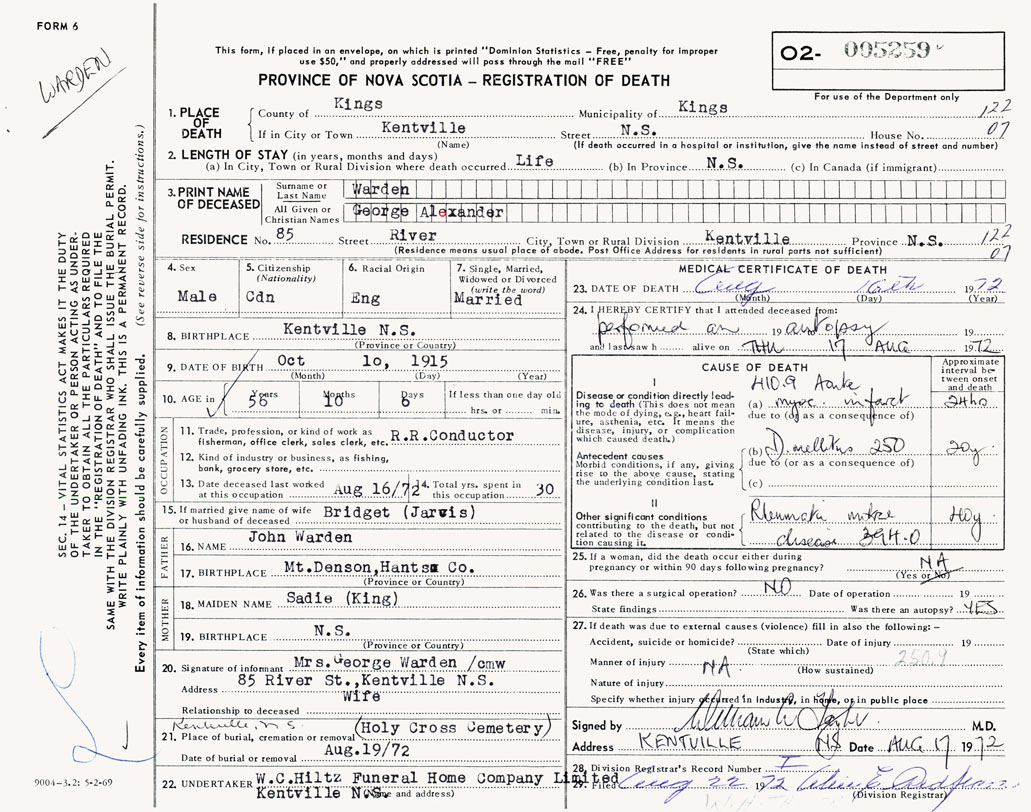 FORM 6
WARDEN
This form, if placed in an envelope, on which is printed "Dominion Statistics – Free, penalty for improper
use $50," and properly addressed will pass through the mail "FREE"
PROVINCE OF NOVA SCOTIA – REGISTRATION OF DEATH
02- 005259
For use of the Department only
1. PLACE OF DEATH
County of Kings Municipality of Kings 122
If in City or Town Kentville Street N.S. House No. 07
(Name) (If death occurred in a hospital or institution, give the name instead of street and number)
2. LENGTH OF STAY (in years, months and days)
(a) In City, Town or Rural Division where death occurred Life (b) In Province N.S. (c) In Canada (if immigrant)
3. PRINT NAME OF DECEASED
Surname or Last Name Warden
All Given or Christian Names George Alexander
RESIDENCE No. 85 Street River City, Town or Rural Division Kentville Province N.S. 122
(Residence means usual place of abode. Post Office Address for residents in rural parts not sufficient) 07
4. Sex Male
5. Citizenship (Nationality) Cdn
6. Racial Origin Eng
7. Single, Married, Widowed or Divorced (write the word) Married
8. BIRTHPLACE Kentville N.S.
(Province or Country)
9. DATE OF BIRTH Oct 10, 1915
(Month) (Day) (Year)
10. AGE in Years 56 Months 10 Days 6 If less than one day old hrs. or min.
OCCUPATION
11. Trade, profession, or kind of work as fisherman, office clerk, sales clerk, etc. R.R.Conductor
12. Kind of industry or business, as fishing, bank, grocery store, etc.
13. Date deceased last worked at this occupation Aug 16/72
14. Total yrs. spent in this occupation 30
15. If married give name of wife or husband of deceased Bridget (Jarvis)
FATHER
16. NAME John Warden
17. BIRTHPLACE Mt.Denson,Hants Co.
(Province or Country)
MOTHER
18. MAIDEN NAME Sadie (King)
19. BIRTHPLACE N.S.
(Province or Country)
20. Signature of informant Mrs.George Warden /cmw
Address 85 River St.,Kentville N.S.
Relationship to deceased Wife
Kentville, N.S.
21. Place of burial, cremation or removal (Holy Cross Cemetery)
Date of burial or removal Aug.19/72
22. UNDERTAKER W.C.Hiltz Funeral Home Company Limited
Kentville N.S.
(Name and address)
MEDICAL CERTIFICATE OF DEATH
23. DATE OF DEATH Aug 16th 1972
(Month) (Day) (Year)
24. I HEREBY CERTIFY that I attended deceased from:
performed an 19 autopsy 19
and last saw h alive on THU 17 AUG 1972
CAUSE OF DEATH
Approximate interval between onset and death
I
Disease or condition directly leading to death (This does not mean the mode of dying, e.g., heart failure, asthenia, etc. It means the disease, injury, or complication which caused death.)
410.9 Acute
(a) myoc. infarct 24ho
due to (or as a consequence of)
Antecedent causes
Morbid conditions, if any, giving rise to the above cause, stating the underlying condition last.
(b) D. mellitus 250 20y
due to (or as a consequence of)
(c)
II
Other significant conditions contributing to the death, but not related to the disease or condition causing it.
Rheumatic mitral 40y
disease 394.0
25. If a woman, did the death occur either during
pregnancy or within 90 days following pregnancy? NA
(Yes or No)
26. Was there a surgical operation? NO Date of operation 19
State findings Was there an autopsy? YES
27. If death was due to external causes (violence) fill in also the following:–
Accident, suicide or homicide? Date of injury 19
(State which) 250.9
Manner of injury NA
(How sustained)
Nature of injury
Specify whether injury occurred in Industry, in home, or in public place
Signed by William M.D.
Address KENTVILLE NS Date AUG 17 1972
28. Division Registrar's Record Number
29. Filed Aug 22 1972
(Division Registrar)
SEC. 14 – VITAL STATISTICS ACT MAKES IT THE DUTY
OF THE UNDERTAKER OR PERSON ACTING AS UNDER-
TAKER TO OBTAIN ALL THE PARTICULARS REQUIRED
IN THE "REGISTRATION OF DEATH" AND TO FILE THE
SAME WITH THE DIVISION REGISTRAR WHO SHALL ISSUE THE BURIAL PERMIT.
WRITE PLAINLY WITH UNFADING INK. THIS IS A PERMANENT RECORD.
Every item of information should be carefully supplied. (See reverse side for instructions.)
9004-3.2: 5-2-69